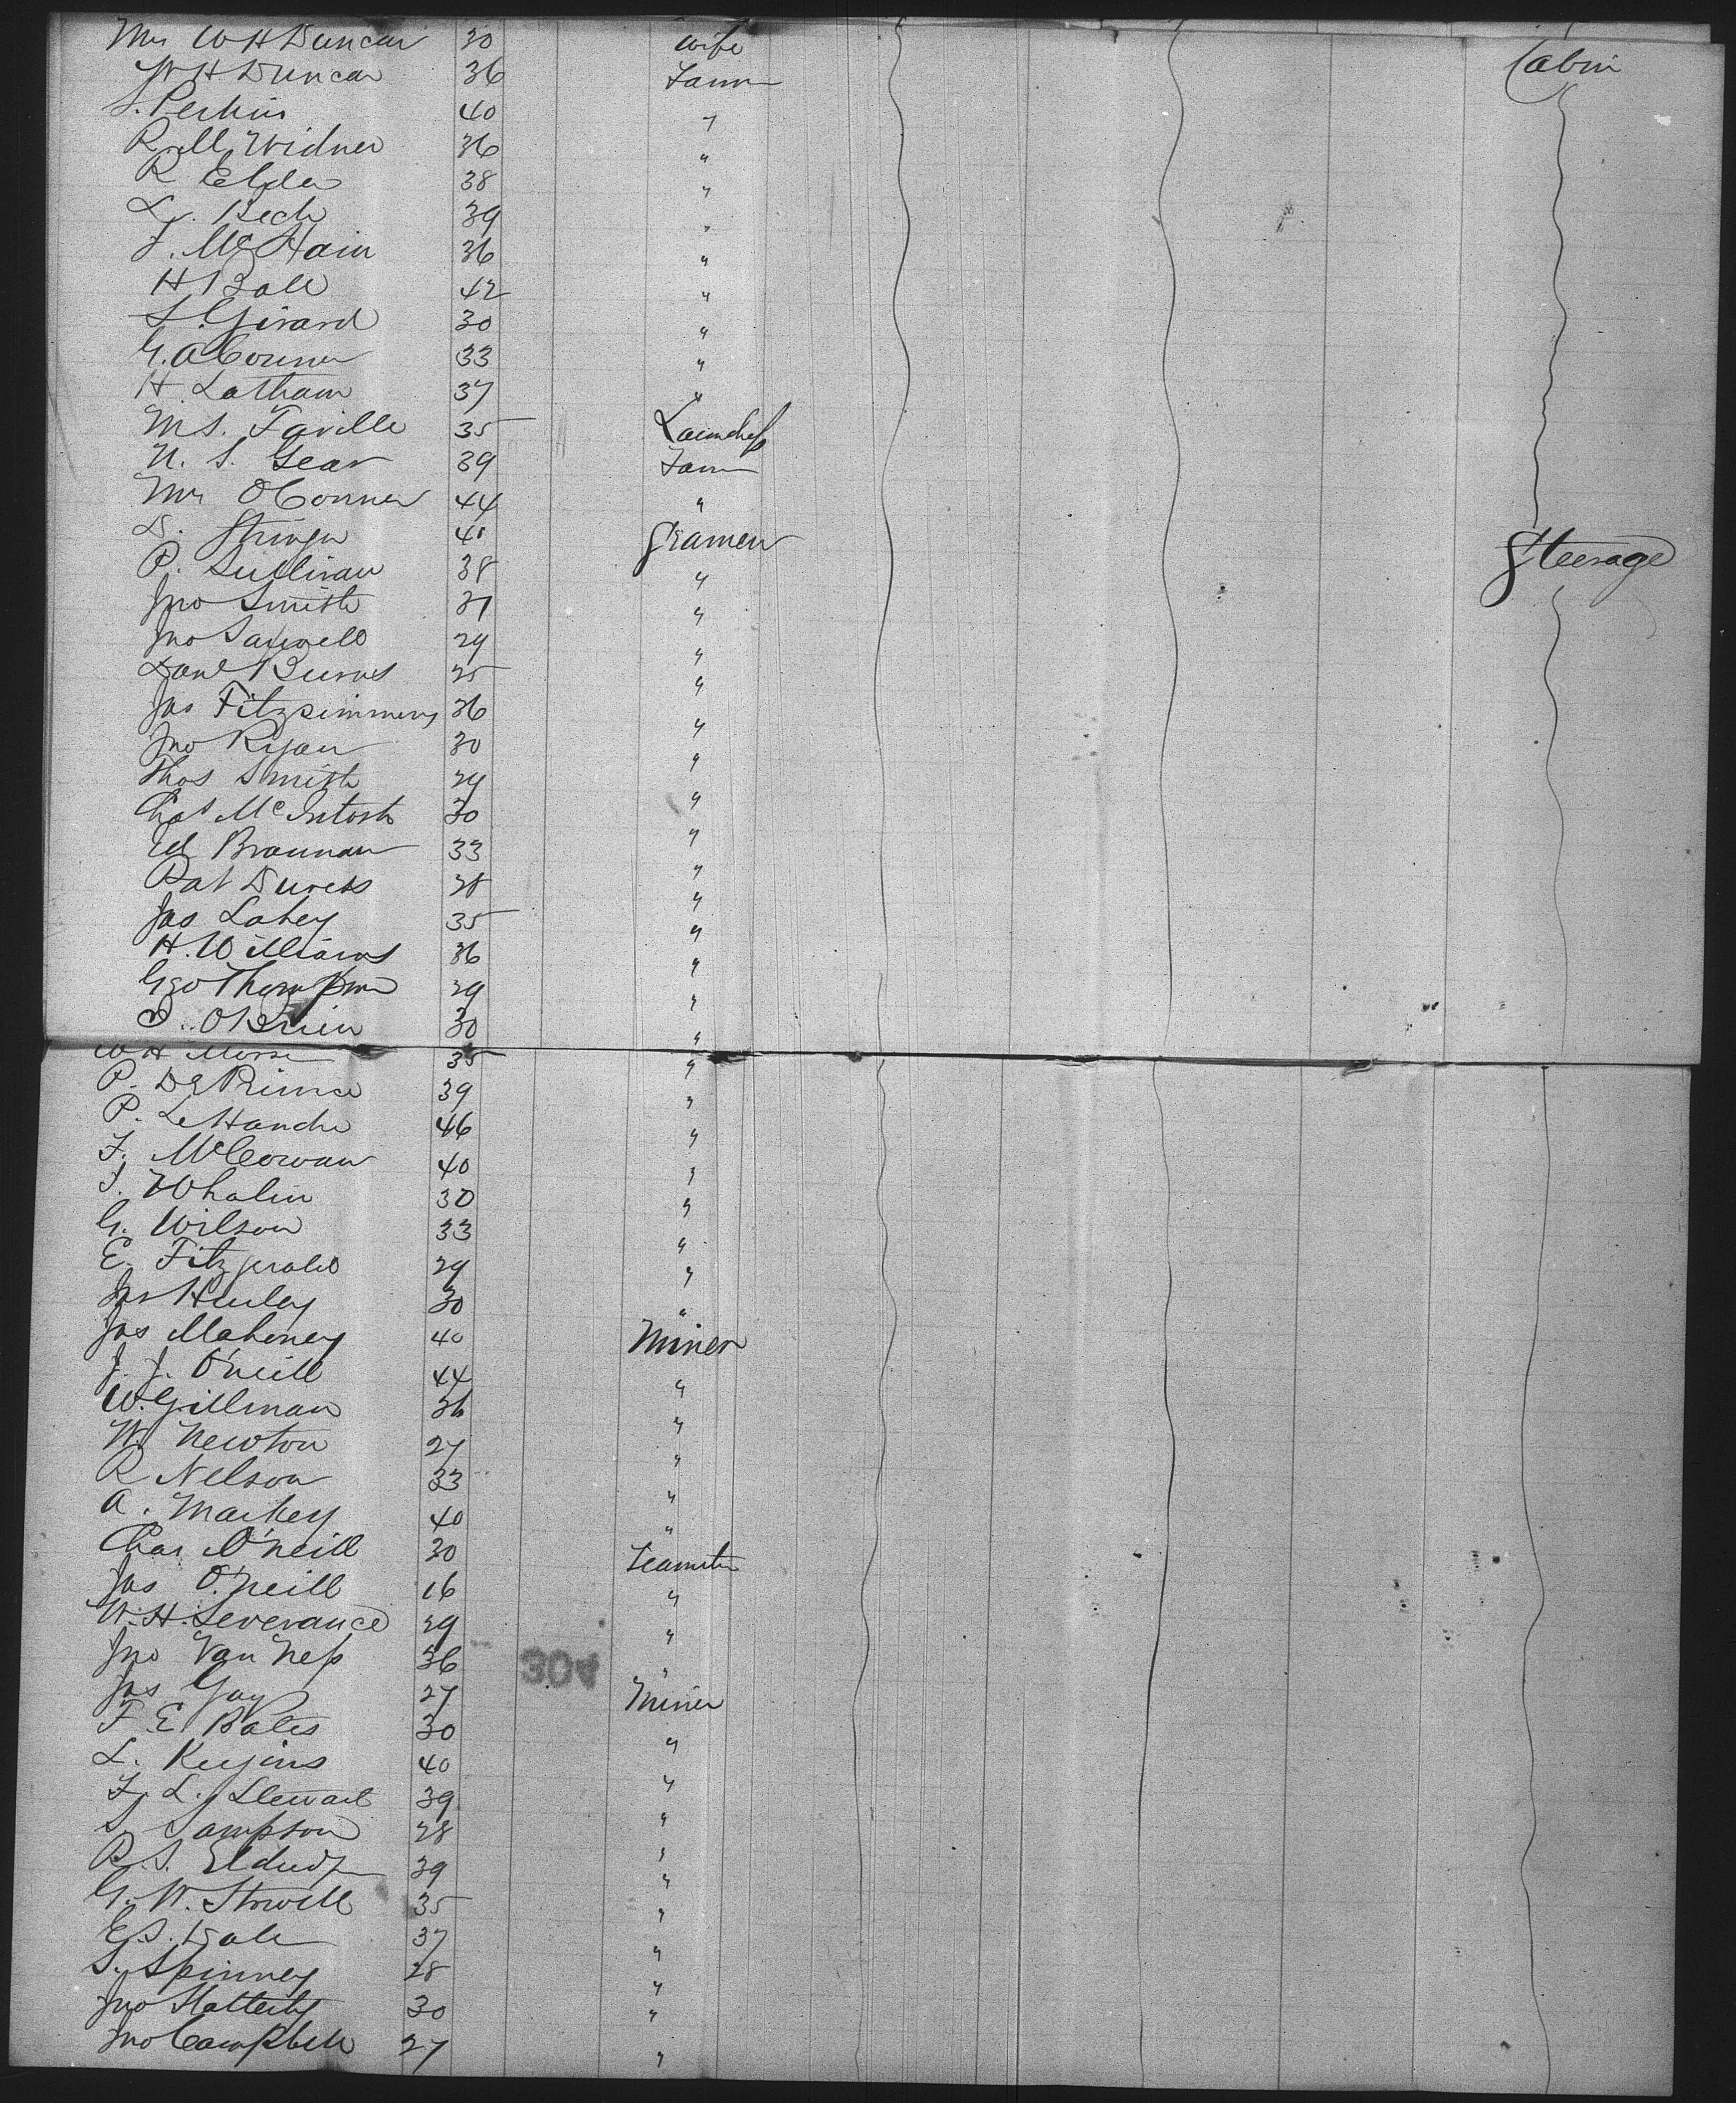 Mrs W H Duncan 30 wife Cabin
W H Duncan 36 Farmer
S. Perkins 40 "
R. M. Widner 36 "
R Elder 38 "
L. Beck 39 "
F. McHain 36 "
H Ball 42 "
S. Girard 30 "
G. A Conner 33 "
H. Latham 37 "
M S. Faville 35 Laundress
N. S. Gear 39 Farmer
Mr OConner 44 "
D. Stringer 41 Seamen Steerage
P. Sullivan 38 "
Jno Smith 31 "
Jno 29 "
Danl Burns 25 "
Jas Fitzsimmons 36 "
Jno Ryan 30 "
Thos Smith 29 "
Chas McIntosh 30 "
Ed Brannan 33 "
Pat 28 "
Jas Lahey 35 "
H. Williams 36 "
Geo Thompson 29 "
D. OBrien 30 "
W H Morse 35 "
P. De Prince 39 "
P. 46 "
F. McCowan 40 "
J. Whalin 30 "
G. Wilson 33 "
E. Fitzgerald 29 "
Jas Hurley 30 "
Jas Mahoney 40 Miner
J. J. O'neill 44 "
W. Gillman 36 "
W. Newton 27 "
R Nelson 33 "
A. Markey 40 "
Chas O'neill 30 Teamster
Jas O'neill 16 "
W. H. Severance 29 "
Jno Van Ness 36 "
304
Jas Gay 27 Miner
F. E. Bates 30 "
L. 40 "
F. L. Stewart 39 "
S. Sampson 28 "
R. S. Eldredge 39 "
G. W. Stowell 35 "
E. S. Dale 37 "
S. Spinney 28 "
Jno Slatterly 30 "
Jno Campbell 27 "